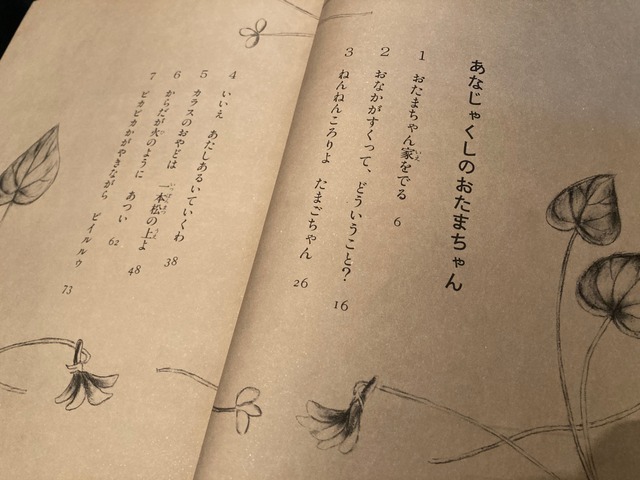 あなじゃくしのおたまちゃん
1 おたまちゃん家をでる 6
2 おなかがすくって、どういうこと? 16
3 ねんねんころりよ たまごちゃん 26
4 いいえ あたしあるいていくわ 38
5 カラスのおやどは 一本松の上よ 48
6 からだが火のように あつい 62
7 ピカピカかがやきながら ピイルルゥ 73